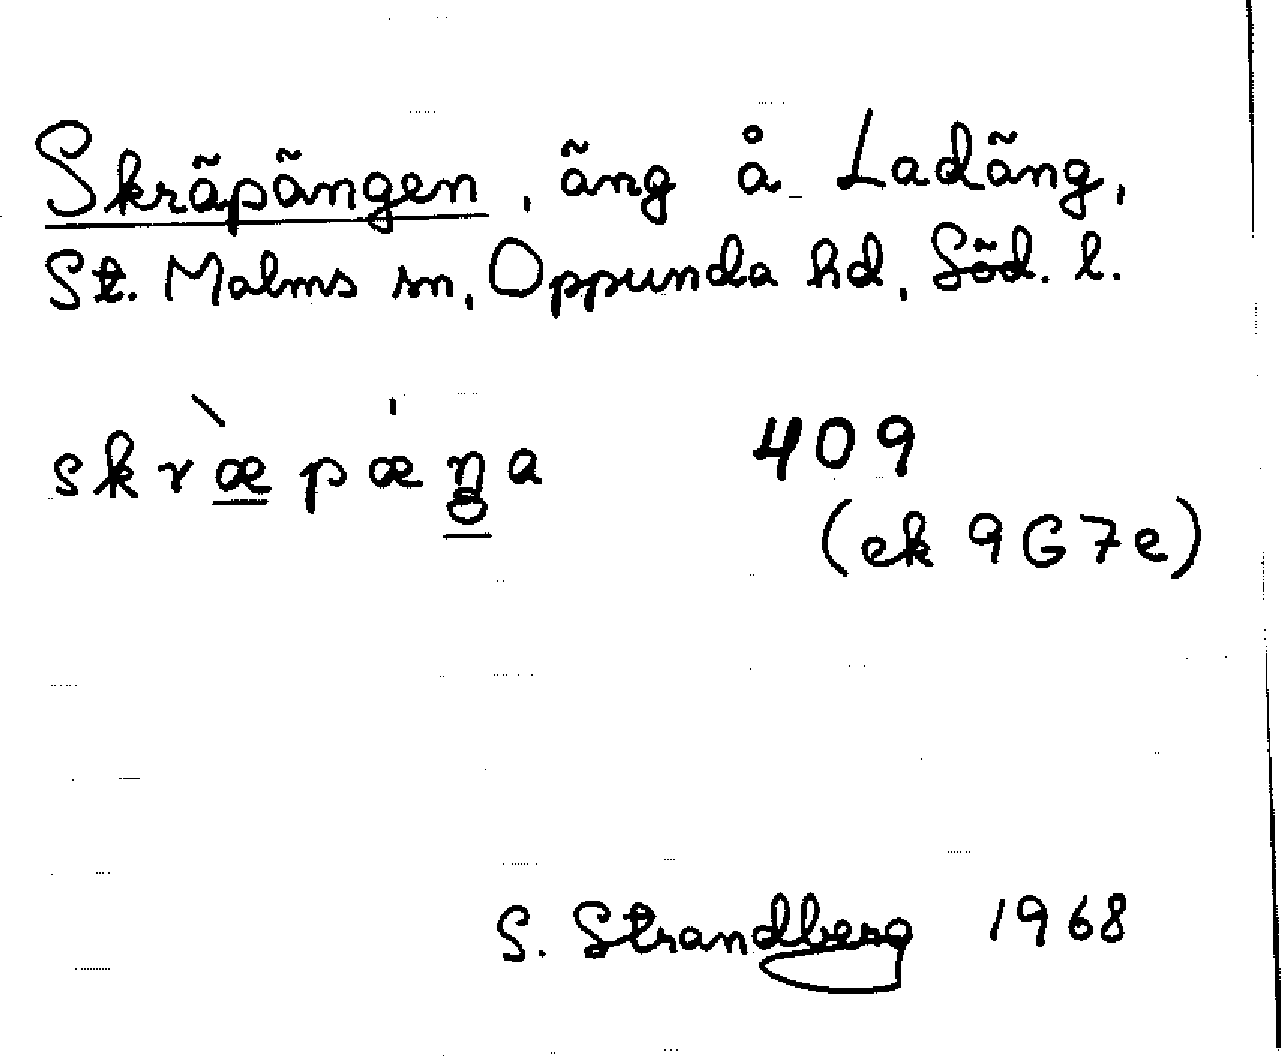 Skräpängen, äng å Ladäng,
St. Malms sn, Oppunda hd, Söd. l.
skr̀æpæ̍ŋa 409
(ek 9G7e)
S. Strandberg 1968